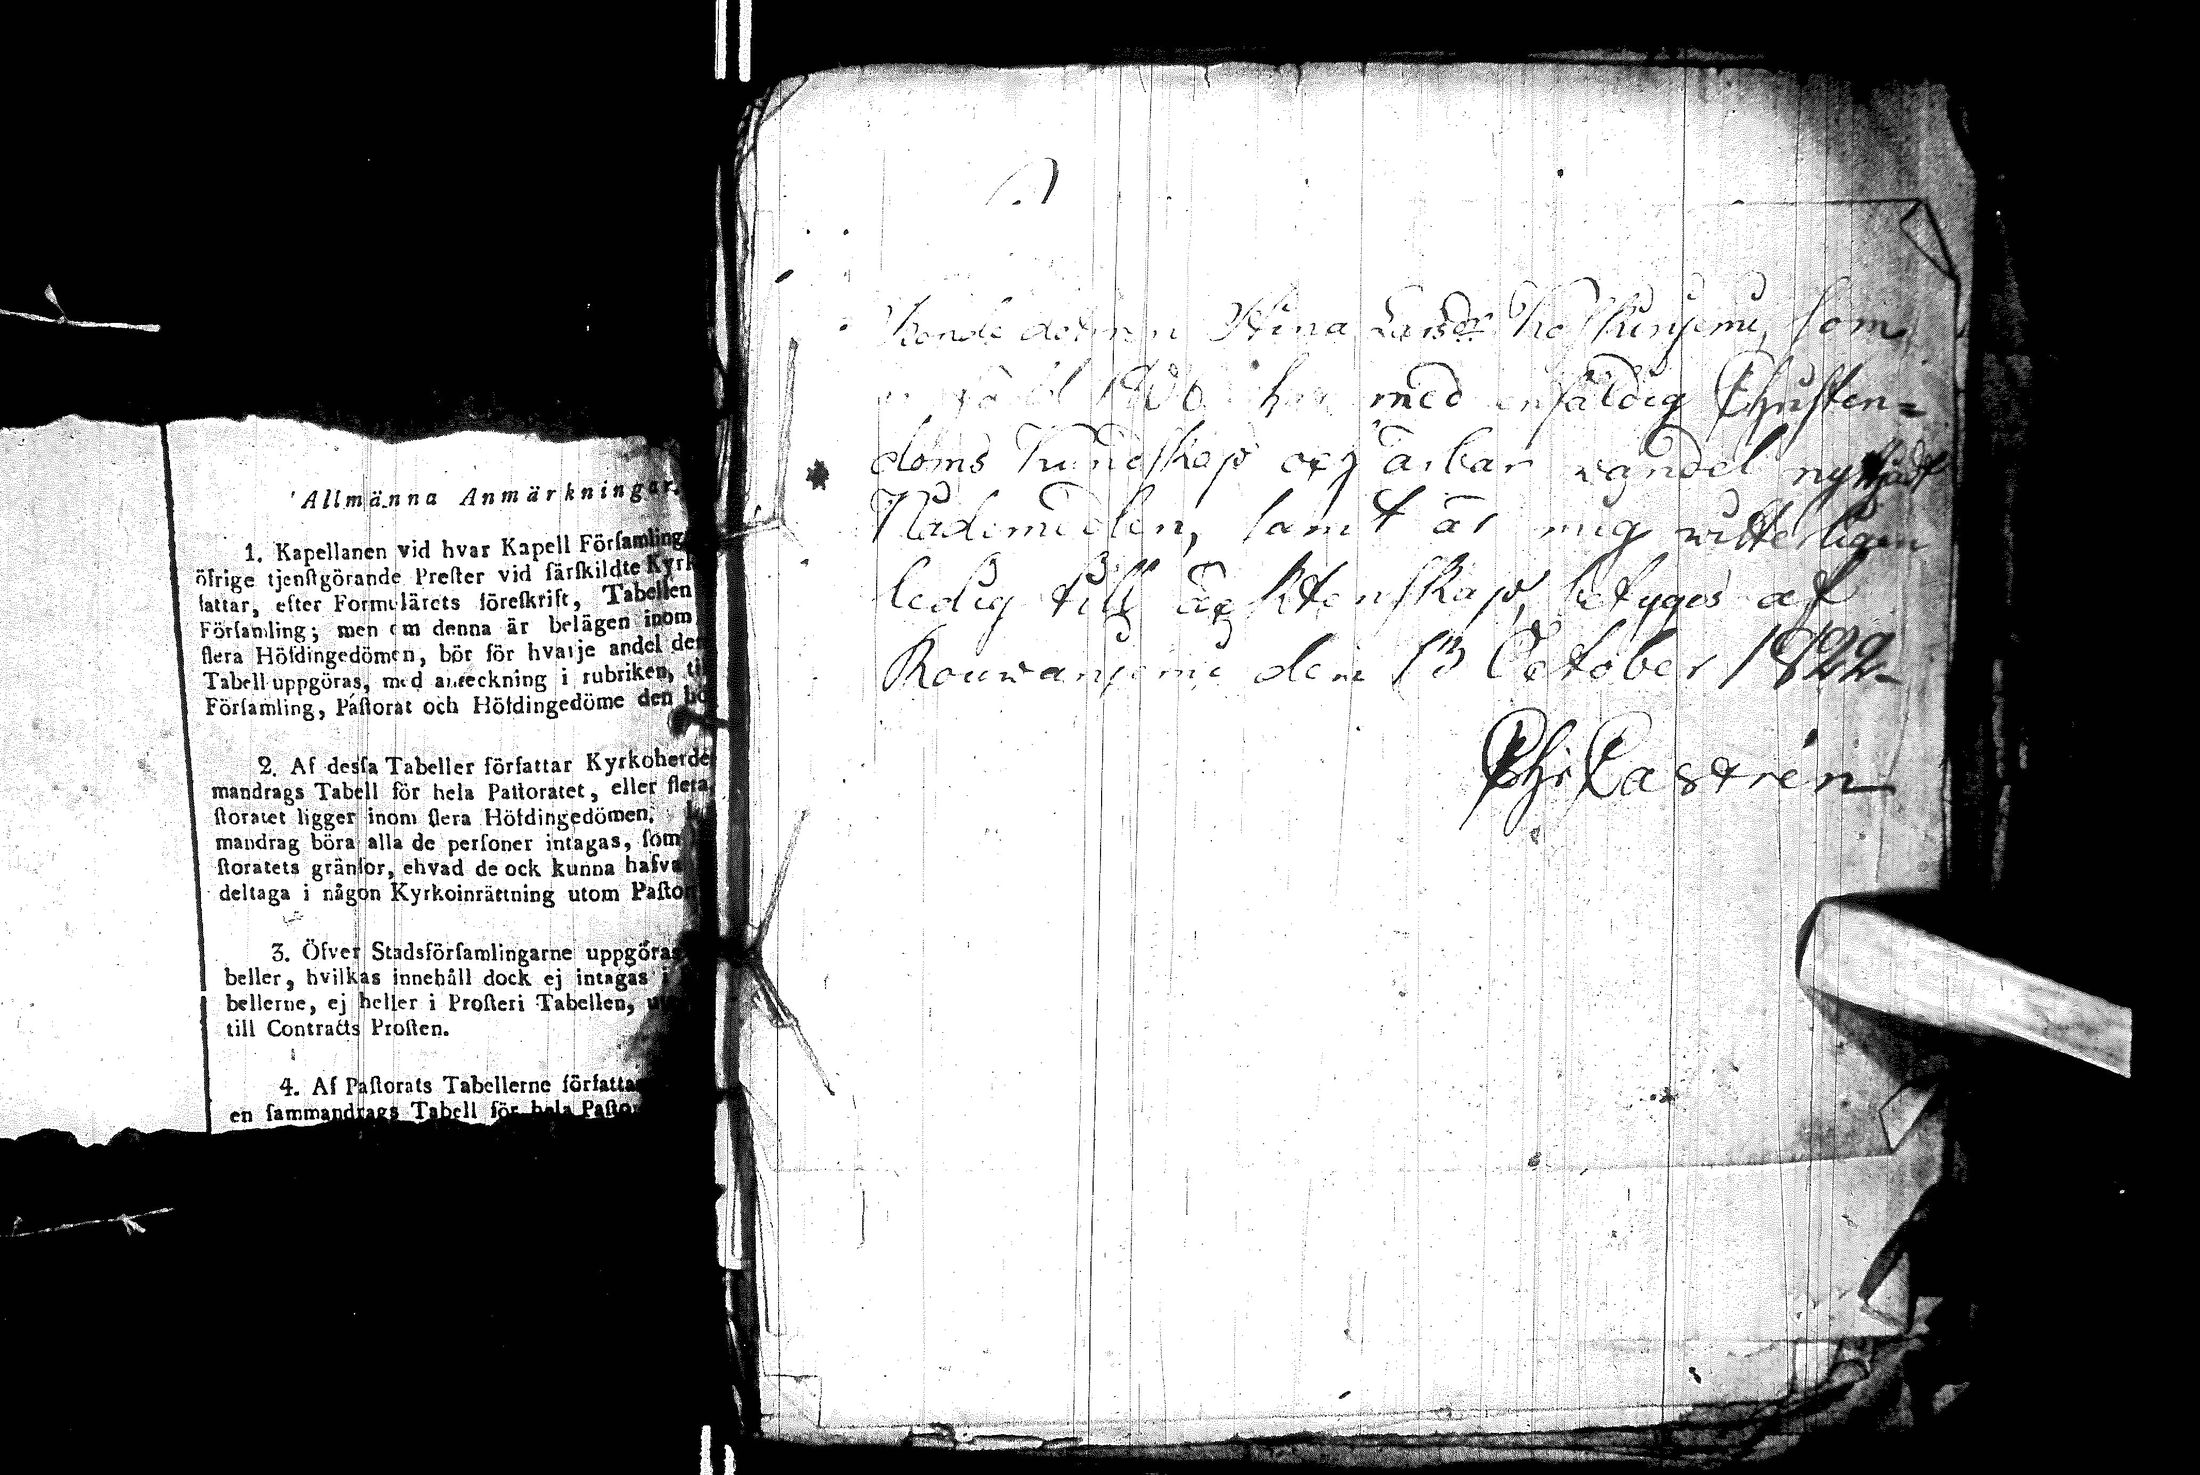 Allmänna Anmärkningar.
1. Kapellanen vid hvar Kapell Förſamling
öfrige tjenſtgörande Preſter vid färſkildte Kyrk
fattar, efter Formulärets föreſkrift, Tabellen
Förſamling; men om denna är belägen inom
flera Höfdingedömen, bör för hvarje andel der
Tabell uppgöras, med anteckning i rubriken, ti
Förſamling, Paſtorat och Höfdingedöme den hö
2. Af deſſa Tabeller författar Kyrkoherde
mandrags Tabell för hela Paſtoratet, eller flera
ſtoratet ligger inom flera Höfdingedömen.
mandrag böra alla de perſoner intagas, ſom
ſtoratets gränſor, ehvad de ock kunna hafva
deltaga i någon Kyrkoinrättning utom Paſtor
3. Öfver Stadsförſamlingarne uppgöras
beller, hvilkas innehåll dock ej intagas i
bellerne, ej heller i Proſteri Tabellen,
till Contracts Proſten.
4. Af Paſtorats Tabellerne författa
en ſammandrags Tabell för hela Paſto
Bondedottren Stina Larsdr Koskiniemi, som
född 1806 har med enfäldig Christen=
doms kundskap och ärbar vandel nyttjadt
Nådemedlen, samt är mig witterligen
ledig till äcktenskap, betygas af
Rouwaniemi den 13 October 1822
Chr Castrén